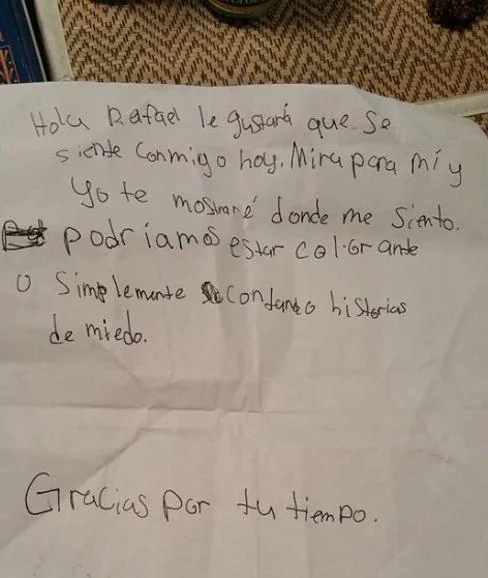 Hola Rafael le gustará que se
siente conmigo hoy. Mira para mí y
yo te mostraré donde me siento.
podriamos estar colorante
o simplemente contando historias
de miedo.
Gracias por tu tiempo.